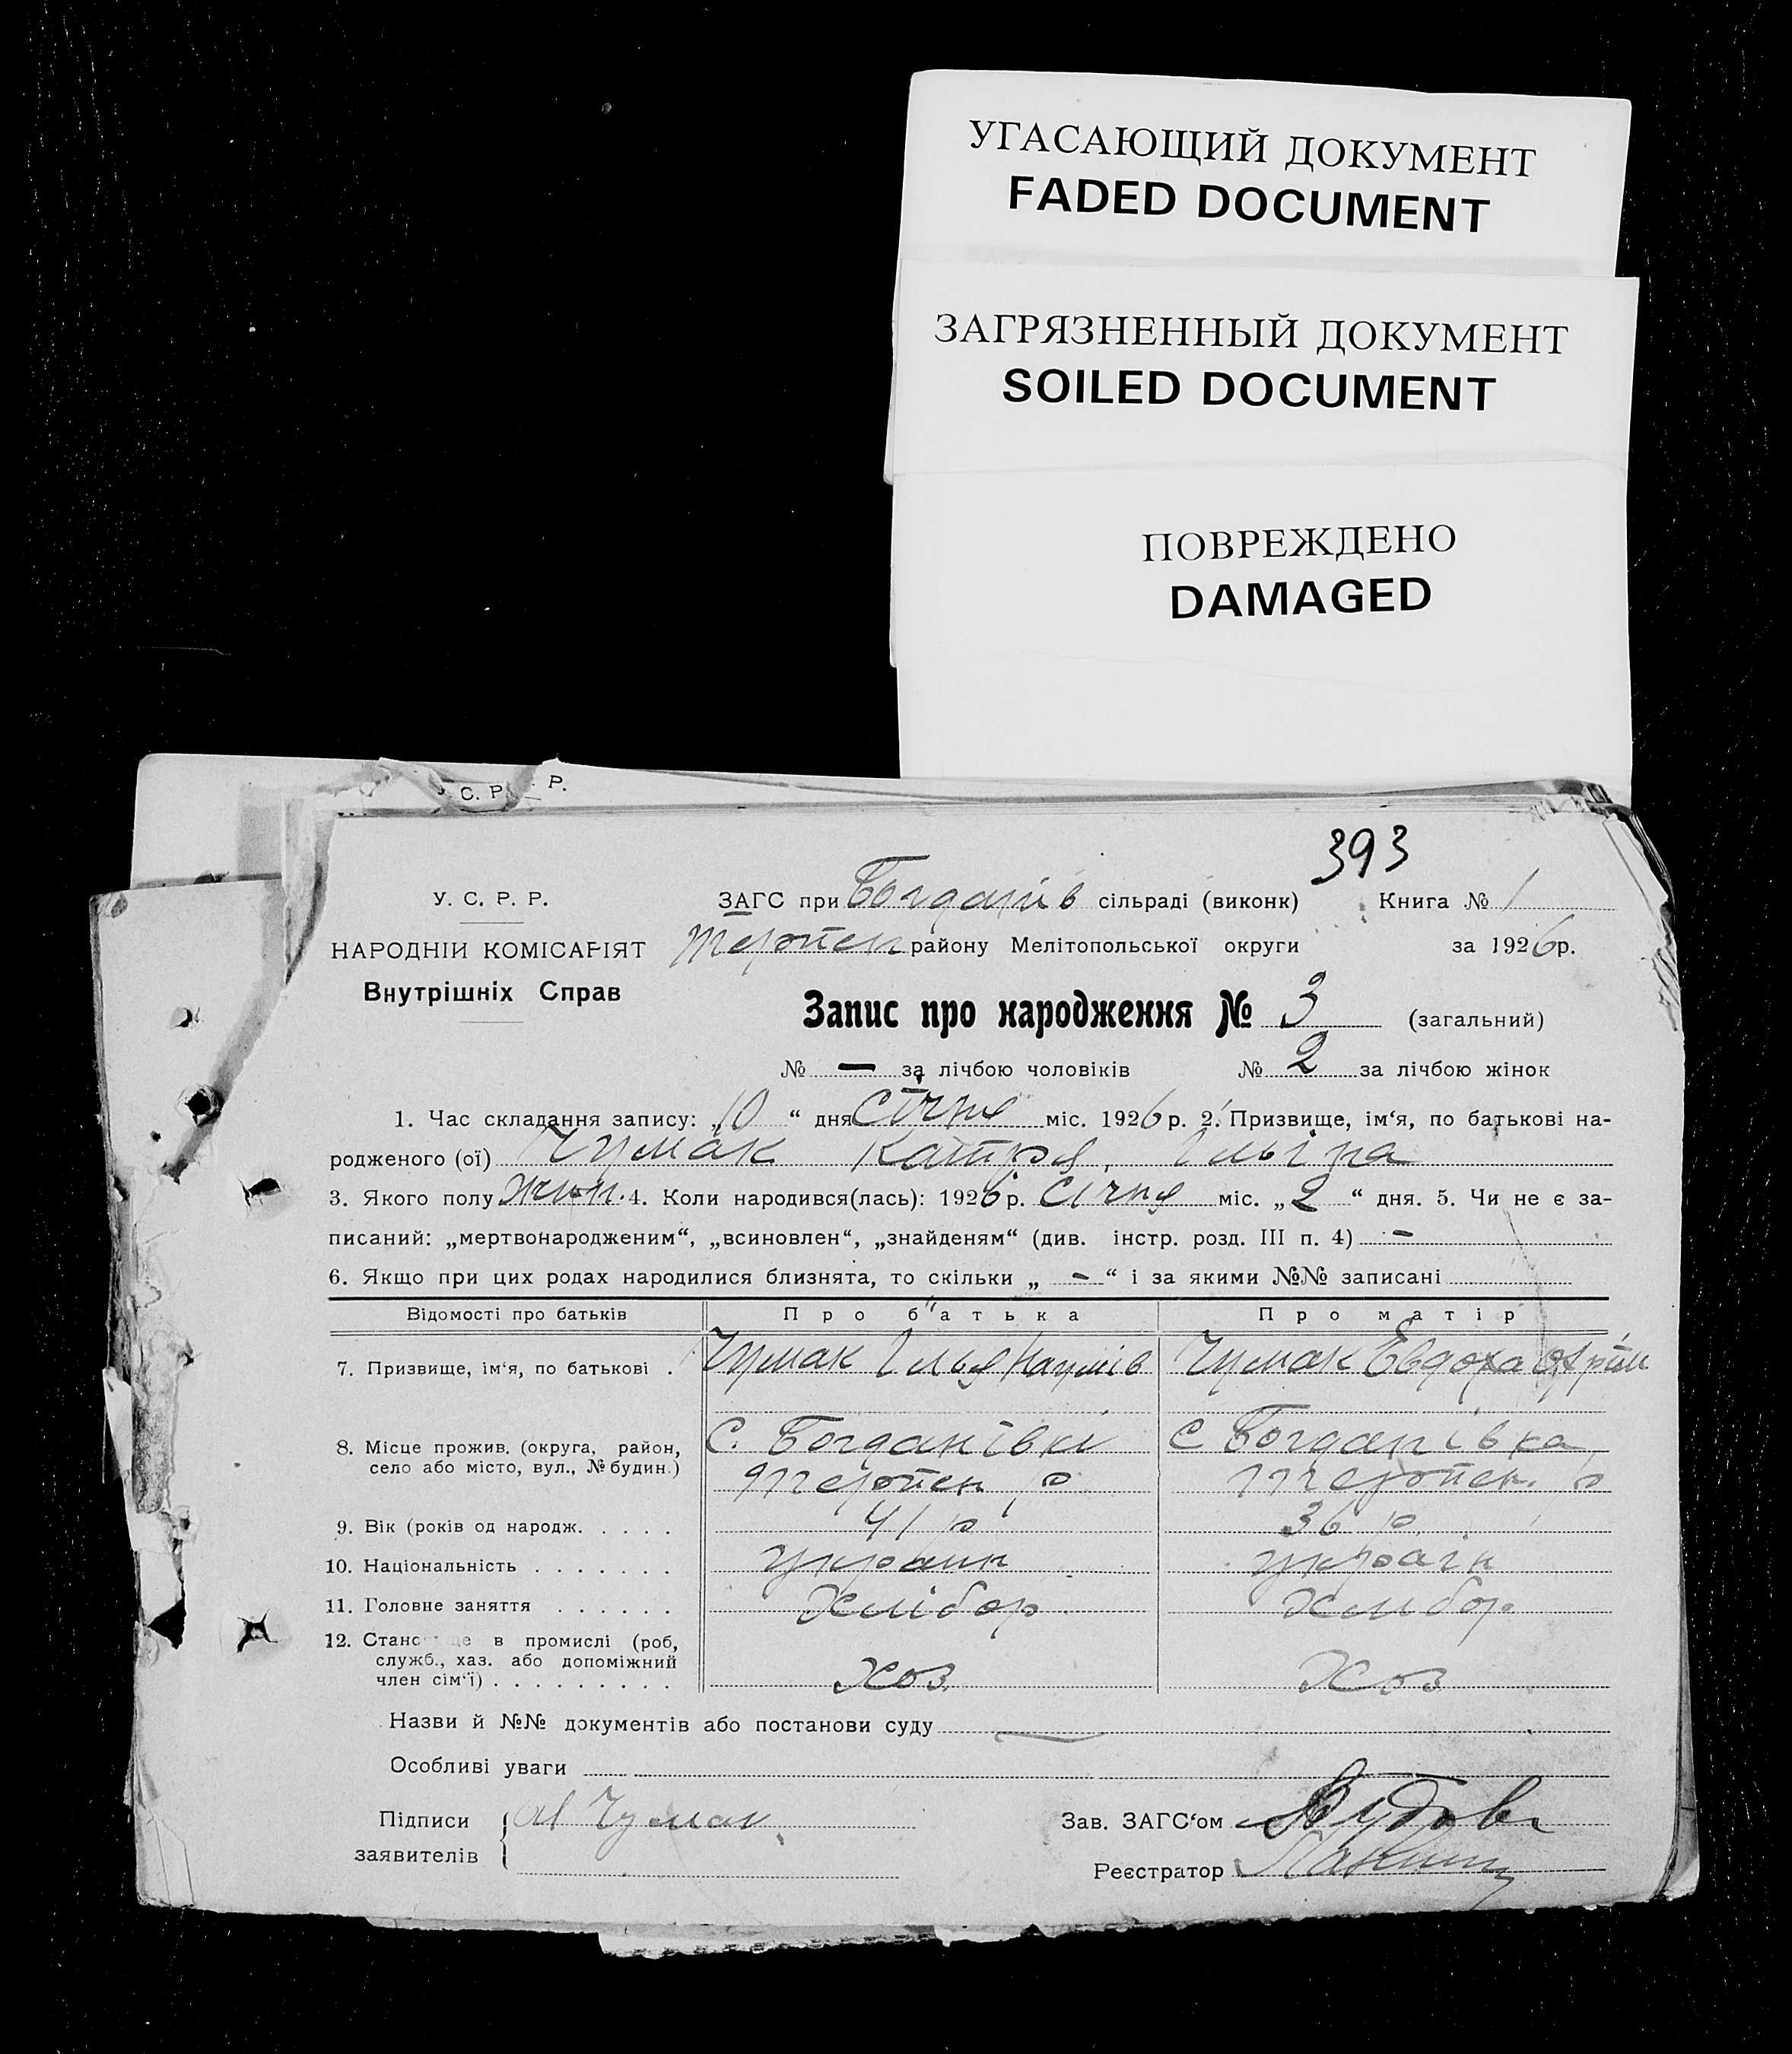 УГАСАЮЩИЙ ДОКУМЕНТ
FADED DOCUMENT
ЗАГРЯЗНЕННЫЙ ДОКУМЕНТ
SOILED DOCUMENT
ПОВРЕЖДЕНО
DAMAGED
С. Р. Р.
393
У. С. Р. Р.
НАРОДНІЙ КОМІСАРІЯТ
Внутрішніх Справ
ЗАГС при Богданів сільраді (виконк) Книга № 1
Терпен району Мелітопольської округи за 1926 р.
Запис про народження № 3 (загальний)
№ — за лічбою чоловіків № 2 за лічбою жінок
1. Час складання запису: „10“ дня Січня міс. 1926 р. 2. Призвище, ім‘я, по батькові на-
родженого (ої) Чумак Катря, Ільїна
3. Якого полу жин. 4. Коли народився(лась): 1926 р. Січня міс. „2“ дня. 5. Чи не є за-
писаний: „мертвонародженим“, „всиновлен“, „знайденям“ (див. інстр. розд. III п. 4) —
6. Якщо при цих родах народилися близнята, то скільки „ — “ і за якими №№ записані
Відомості про батьків Про батька Про матір
7. Призвище, ім‘я, по батькові . Чумак Ілья Наумів Чумак Евдоха
8. Місце прожив. (округа, район, С. Богданівкі С Богданівка
село або місто, вул., № будин.) Терпен р Терпен. р
9. Вік (років од народж. . . . . 41 р 36 р.
10. Національність . . . . . . . україн україн
11. Головне заняття . . . . . . Хлібор. Хлибор.
12. Стано ще в промислі (роб,
служб., хаз. або допоміжний
член сім‘ї) . . . . . . . . . хоз. Хоз
Назви й №№ документів або постанови суду
Особливі уваги
Підписи Чумак
заявителів
Зав. ЗАГС‘ом
Реєстратор